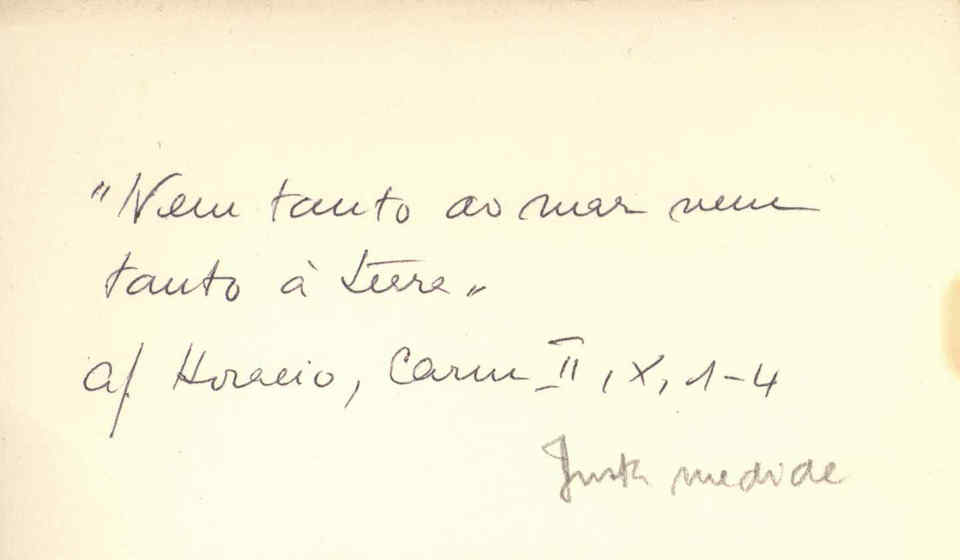 "Nem tanto ao mar nem
tanto à terra"
cf. Horacio, Carm II, X, 1-4
Justa medida